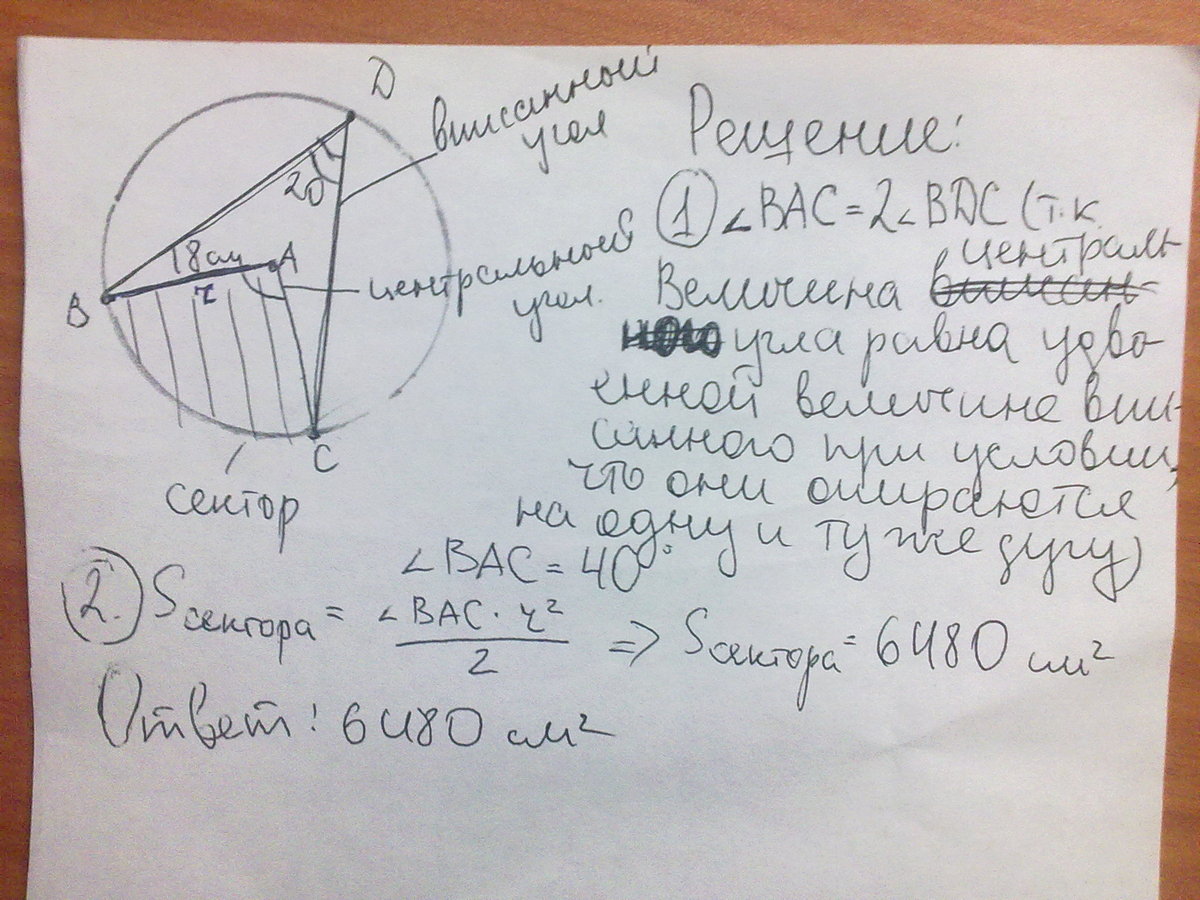 D
вписанный
угол
20
18 см
A
B
r
центральный
угол.
C
сектор
Решение:
① ∠BAC = 2∠BDC (т.к.
централь-
Величина вписан-
ного угла равна удво-
енной величине впи-
санного при условии,
что они опираются
на одну и ту же дугу)
∠BAC = 40°
2. Sсектора = ∠BAC · r² / 2 => Sсектора = 6480 см²
Ответ: 6480 см²